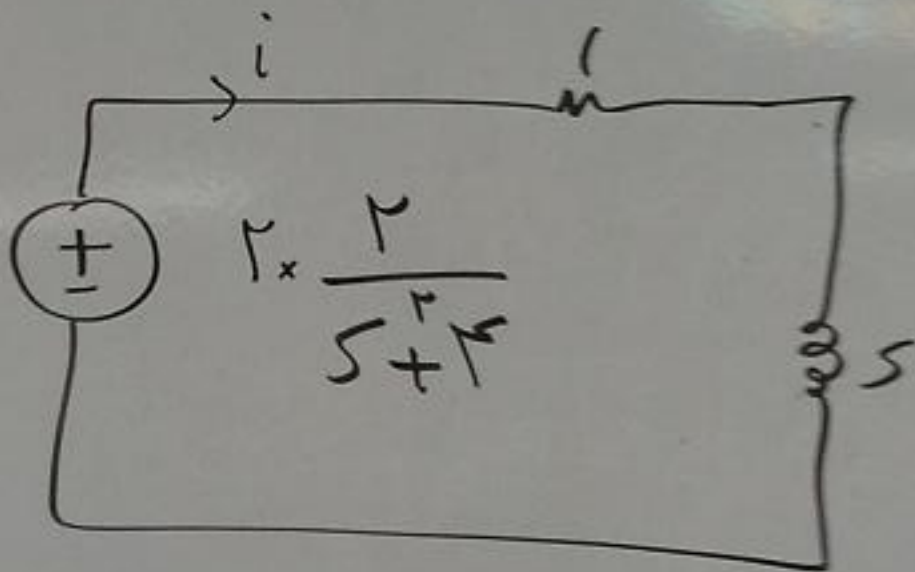 i
۱
+
-
۲ × ۲ / (s^۲ + ۴)
s